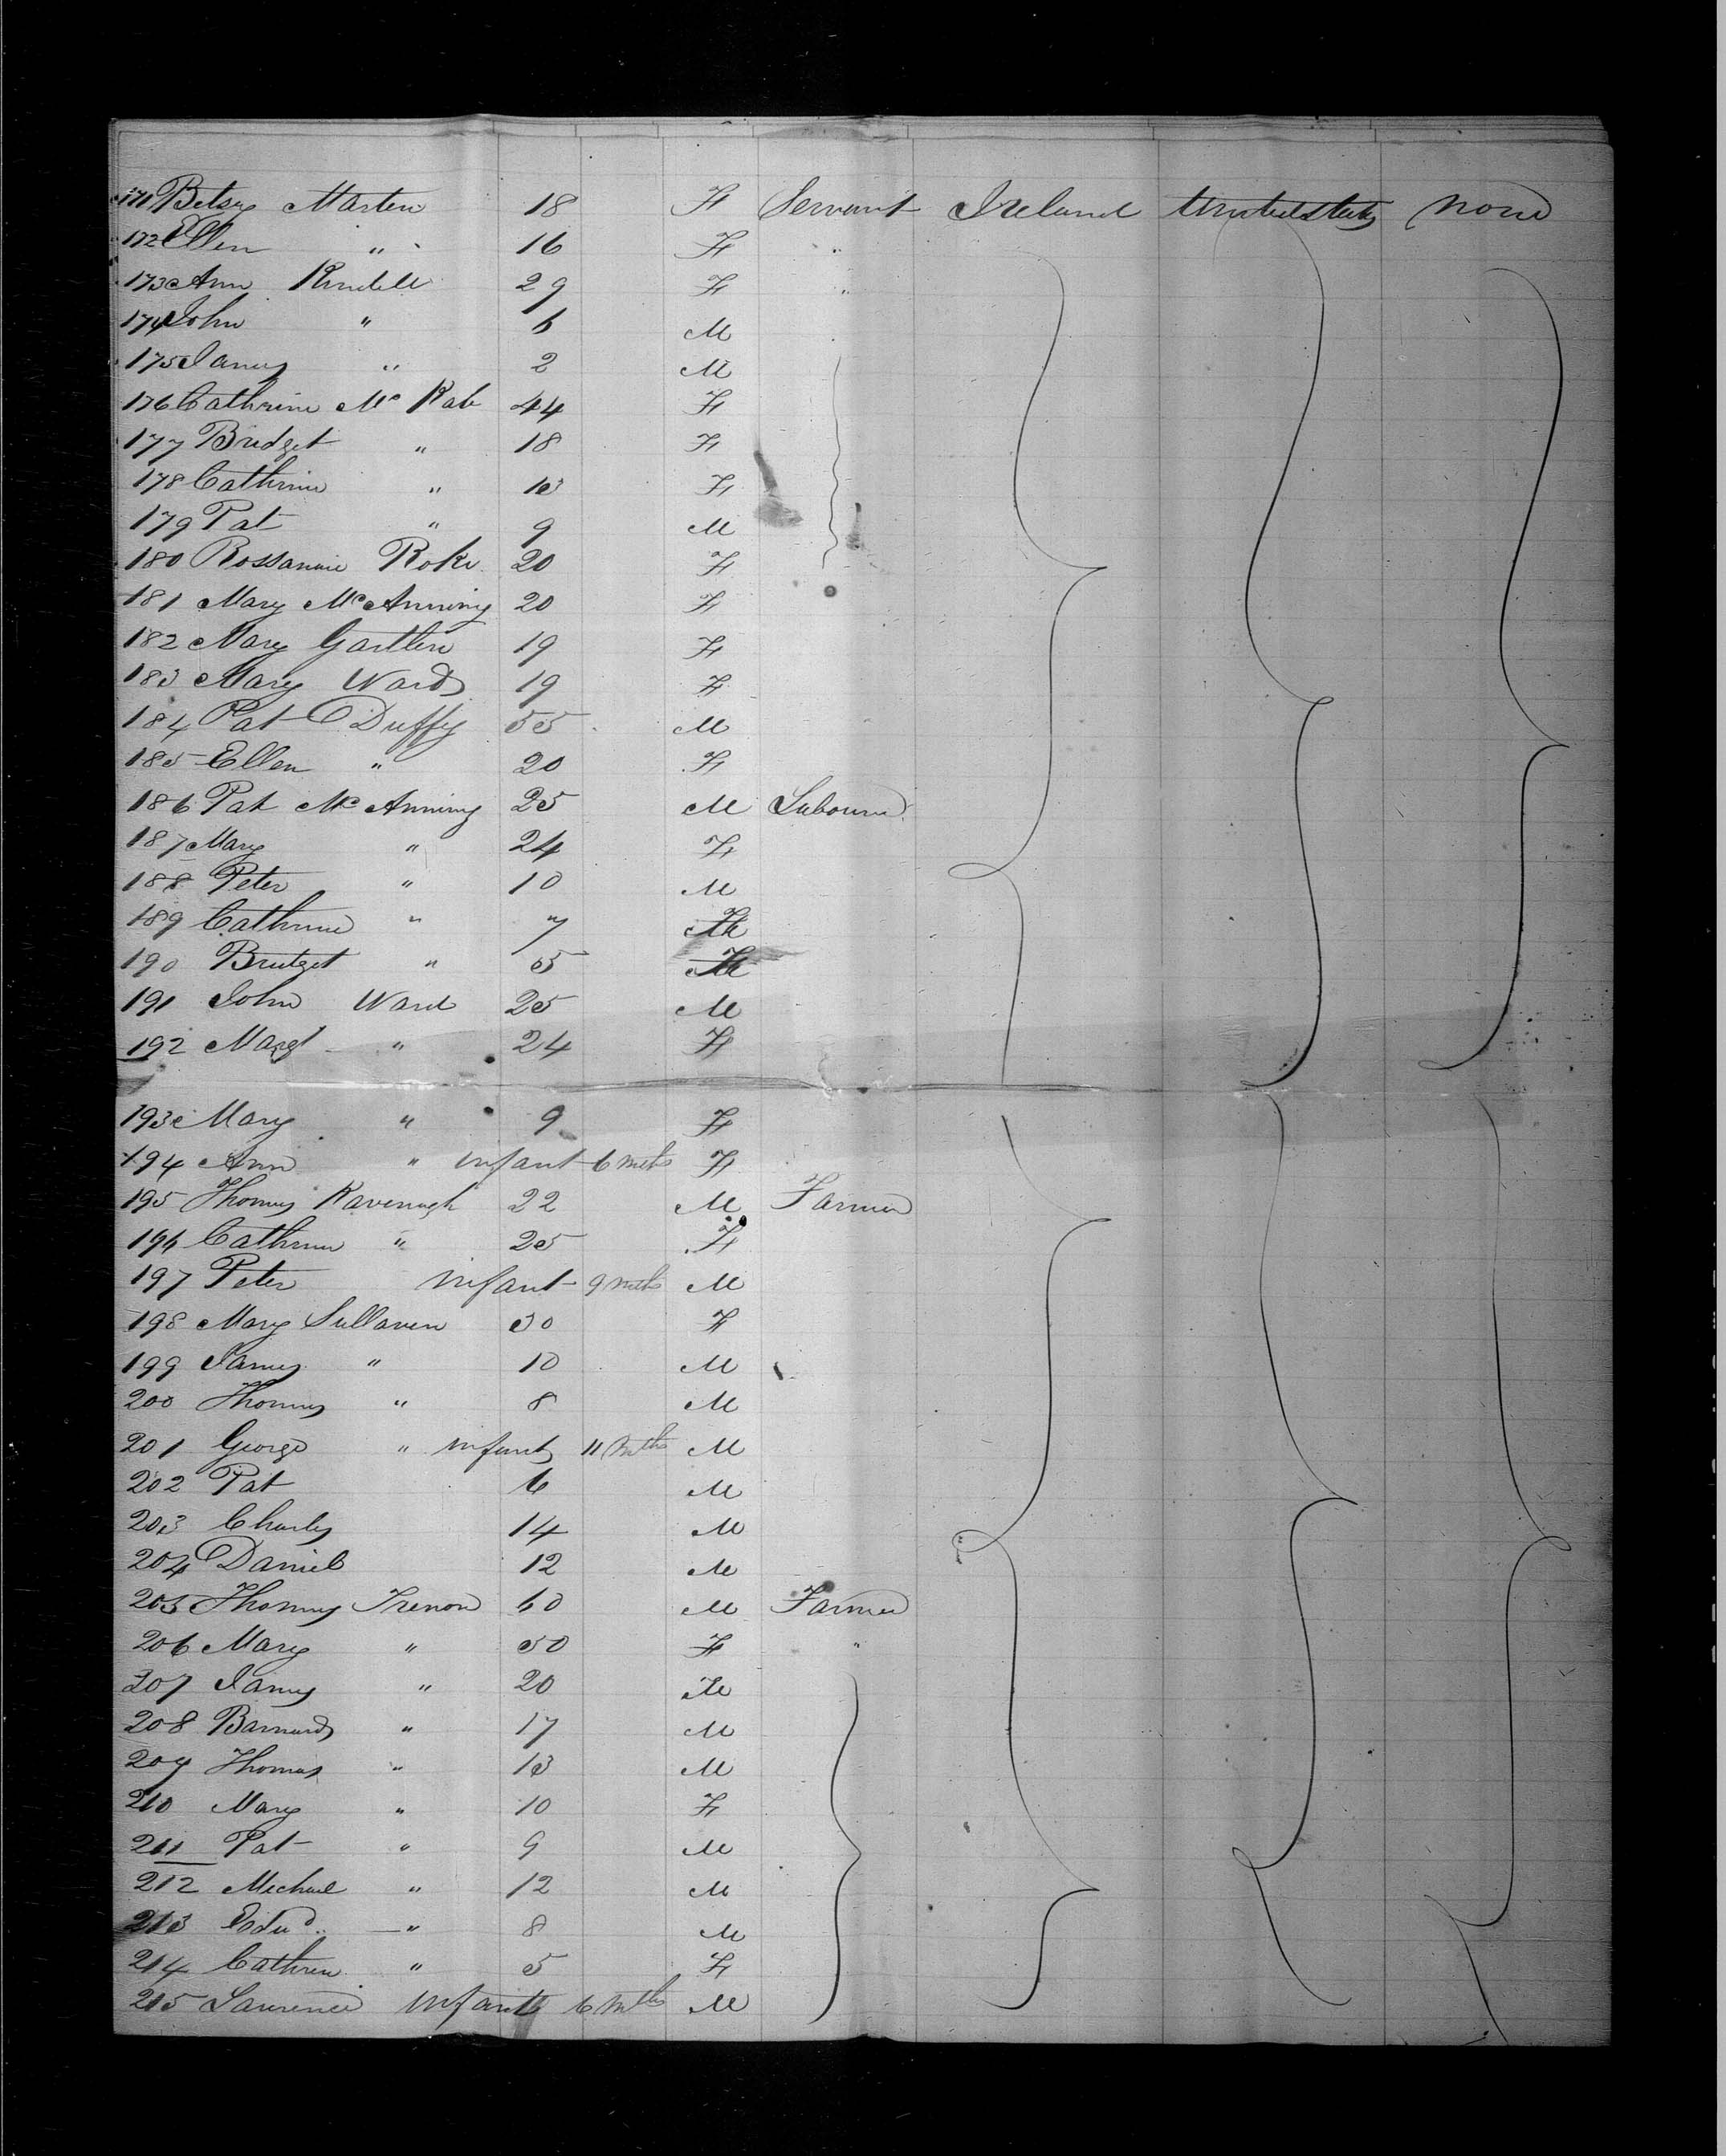 171 Betsy Marten 18 F Servant Ireland United States none
172 Ellen " 16 F "
173 Ann 29 F "
174 John " 6 M
175 James " 2 M
176 Cathrine Mc Kab 44 F
177 Bridget " 18 F
178 Cathrine " 13 F
179 Pat " 9 M
180 Rossannie Roke 20 F
181 Mary McAnniny 20 F
182 Mary Gartlin 19 F
183 Mary Ward 19 F
184 Pat Duffy 55 M
185 Ellen " 20 F
186 Pat Mc Anniny 25 M Labourer
187 Mary " 24 F
188 Peter " 10 M
189 Cathrine " 7 F
190 Bridget " 5 F
191 John Ward 25 M
192 Margt " 24 F
193 Mary " 9 F
194 Ann " infant 6 mths F
195 Thomas Kavenagh 22 M Farmer
196 Cathrine " 25 F
197 Peter infant 9 mths M
198 Mary Sullaven 30 F
199 James " 10 M
200 Thomas " 8 M
201 George " infant 11 mths M
202 Pat 6 M
203 Charles 14 M
204 Daniel 12 M
205 Thomas Trenor 60 M Farmer
206 Mary " 50 F "
207 James " 20 M
208 Barnard " 17 M
209 Thomas " 13 M
210 Mary " 10 F
211 Pat " 9 M
212 Michael " 12 M
213 Edwd " 8 M
214 Cathren " 5 F
215 Laurence infant 6 mths M